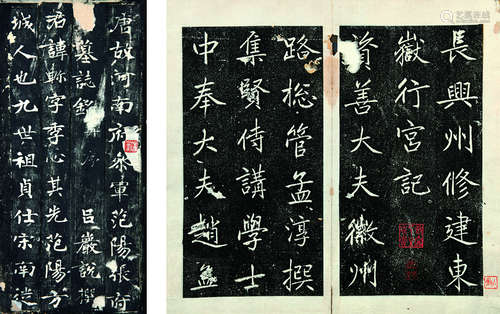 長興州修建東
嶽行宮記
資善大夫徽州
路緫管孟淳撰
集賢侍講學士
中奉大夫趙孟
唐故河南府叅軍范陽張府
墓誌銘 序 呂巖說撰
君諱軫字季心其先范陽方
城人也九世祖貞仕宋南徙